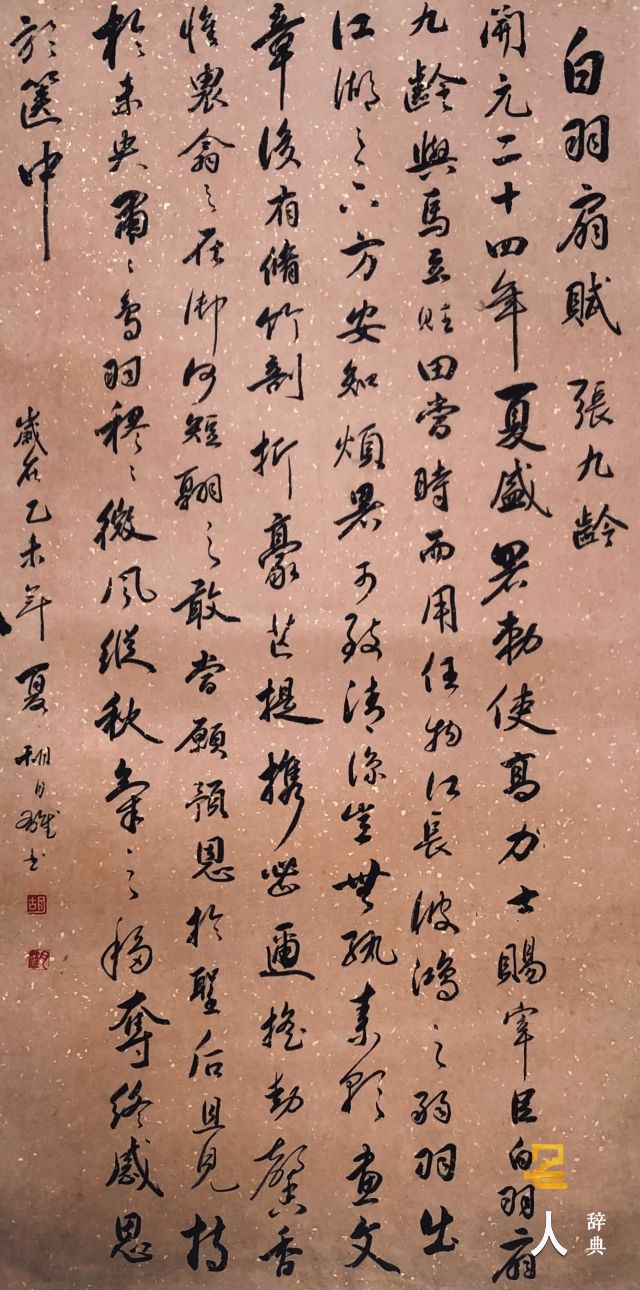 白羽扇賦 張九齡
開元二十四年夏盛暑勅使高力士賜宰臣白羽扇
九齡與焉立賦田當時而用任物所長彼鴻之弱羽出
江湖之下方安知煩暑可致清涼豈無紈素彩畫文
章後有脩竹剖析豪芒提攜密邇搖動馨香
惟衆禽之在御何短翮之敢當願預恩於聖后且見持
於未央肅〻鳥羽穆〻微風縱秋氣之移奪終感恩
於篋中
歲在乙未年夏 胡日書
胡
人
辞典